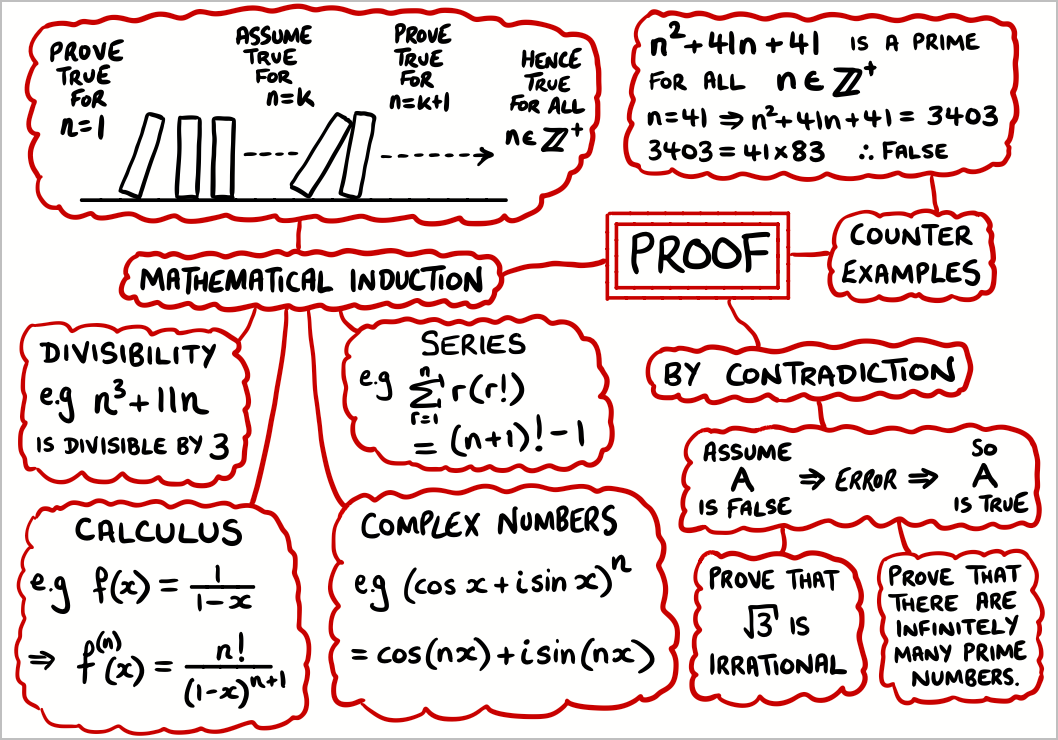 PROVE
TRUE
FOR
n=1
ASSUME
TRUE
FOR
n=k
PROVE
TRUE
FOR
n=k+1
HENCE
TRUE
FOR ALL
n∈ℤ⁺
n²+41n+41 IS A PRIME
FOR ALL n∈ℤ⁺
n=41 ⇒ n²+41n+41 = 3403
3403 = 41×83 ∴ FALSE
PROOF
COUNTER
EXAMPLES
MATHEMATICAL INDUCTION
DIVISIBILITY
e.g n³+11n
IS DIVISIBLE BY 3
SERIES
e.g ∑_{r=1}^{n} r(r!)
= (n+1)!-1
CALCULUS
e.g f(x) = 1/(1-x)
⇒ f⁽ⁿ⁾(x) = n!/(1-x)ⁿ⁺¹
COMPLEX NUMBERS
e.g (cos x + i sin x)ⁿ
= cos(nx) + i sin(nx)
BY CONTRADICTION
ASSUME
A
IS FALSE
⇒ ERROR ⇒
SO
A
IS TRUE
PROVE THAT
√3 IS
IRRATIONAL
PROVE THAT
THERE ARE
INFINITELY
MANY PRIME
NUMBERS.